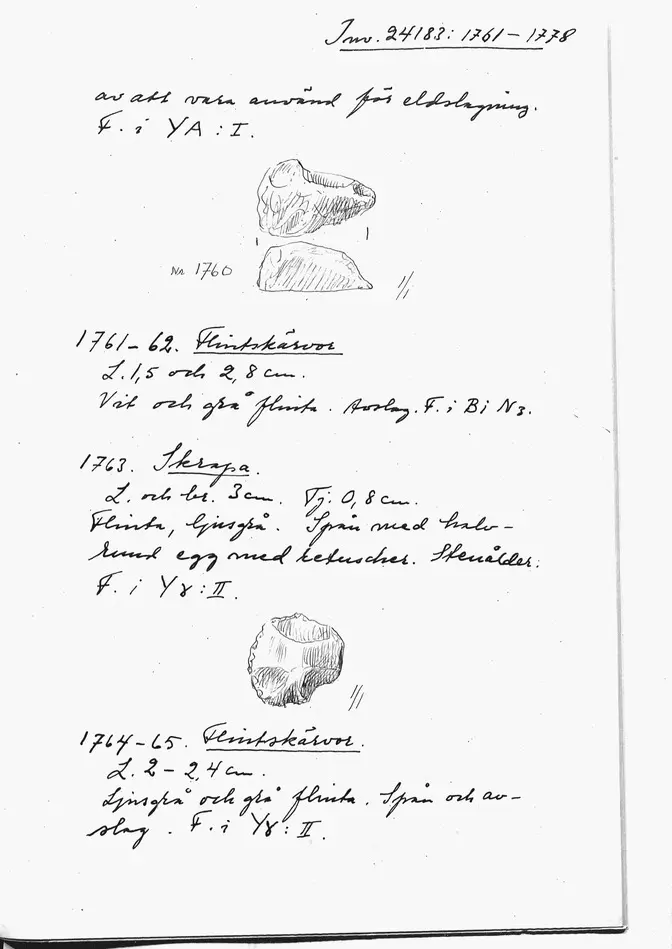 Inv. 24183: 1761-1778
av att vara använd för eldslagning.
F. i YA : I.
Nr 1760
1/1
1761-62. Flintskärvor
L. 1,5 och 2,8 cm.
Vit och grå flinta. Avslag. F. i Bi N3.
1763. Skrapa.
L. och br. 3 cm. Tj. 0,8 cm.
Flinta, ljusgrå. Spån med halv-
rund egg med retuscher. Stenålder.
F. i Yγ : II.
1/1
1764-65. Flintskärvor.
L. 2 - 2,4 cm.
Ljusgrå och grå flinta. Spån och av-
slag. F. i Yγ : II.